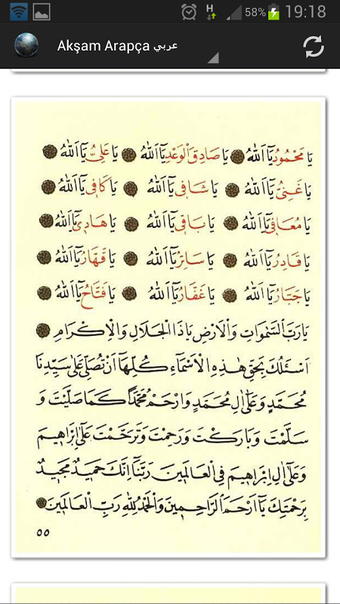 58% 19:18
Akşam Arapça عربي
يَا مَحْمُودُ يَآ اَللهُ يَا صَادِقَ الْوَعْدِ يَآ اَللهُ يَا عَلِيُّ يَآ اَللهُ
يَا غَنِيُّ يَآ اَللهُ يَا شَافِي يَآ اَللهُ يَا كَافِي يَآ اَللهُ
يَا مُعَافِي يَآ اَللهُ يَا بَاقِي يَآ اَللهُ يَا هَادِي يَآ اَللهُ
يَا قَادِرُ يَآ اَللهُ يَا سَاتِرُ يَآ اَللهُ يَا قَهَّارُ يَآ اَللهُ
يَا جَبَّارُ يَآ اَللهُ يَا غَفَّارُ يَآ اَللهُ يَا فَتَّاحُ يَآ اَللهُ
يَا رَبَّ السَّمٰوَاتِ وَالْاَرْضِ يَا ذَا الْجَلَالِ وَالْاِكْرَامِ
اَسْئَلُكَ بِحَقِّ هٰذِهِ الْاَسْمَآءِ كُلِّهَا اَنْ تُصَلِّيَ عَلٰى سَيِّدِنَا
مُحَمَّدٍ وَعَلٰى اٰلِ مُحَمَّدٍ وَارْحَمْ مُحَمَّدًا كَمَا صَلَّيْتَ وَ
سَلَّمْتَ وَبَارَكْتَ وَرَحِمْتَ وَتَرَحَّمْتَ عَلٰى اِبْرَاهِيمَ
وَعَلٰى اٰلِ اِبْرَاهِيمَ فِي الْعَالَمِينَ رَبَّنَا اِنَّكَ حَمِيدٌ مَجِيدٌ
بِرَحْمَتِكَ يَآ اَرْحَمَ الرَّاحِمِينَ وَالْحَمْدُ لِلهِ رَبِّ الْعَالَمِينَ
٥٥